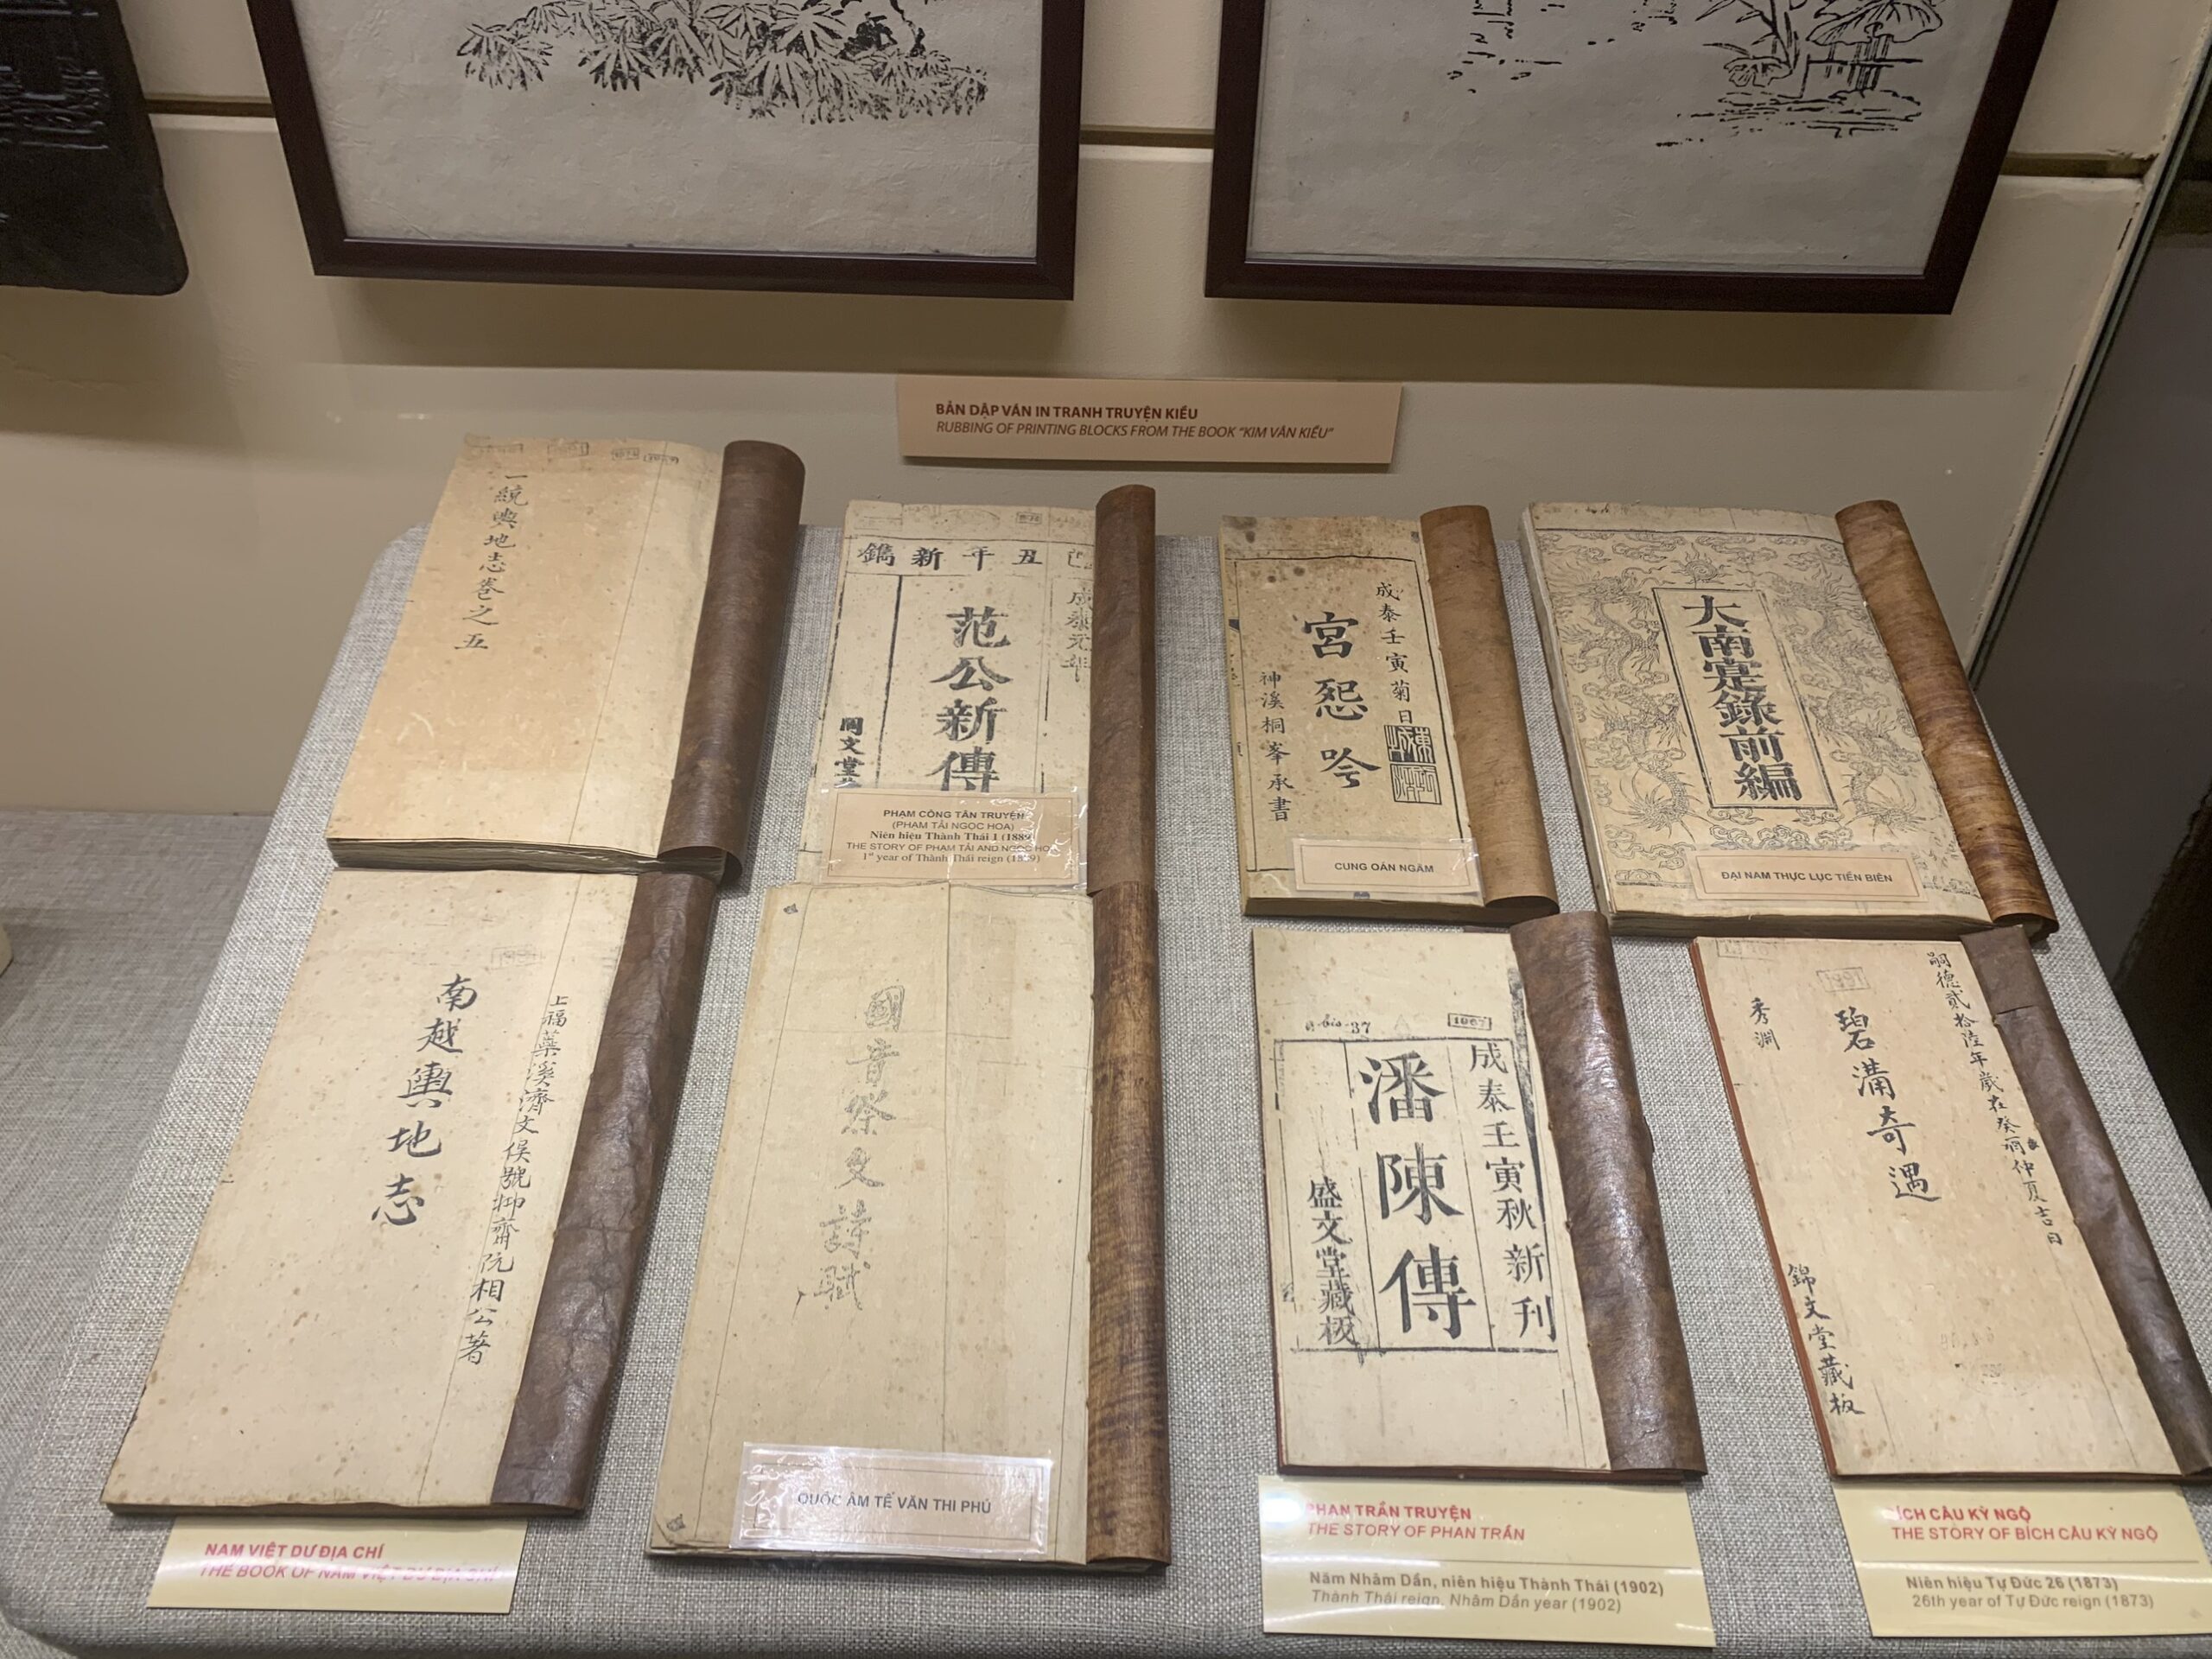 BẢN DẬP VÁN IN TRANH TRUYỆN KIỀU
RUBBING OF PRINTING BLOCKS FROM THE BOOK "KIM VÂN KIỀU"
一統輿地志卷之五
丑年新鐫
成泰元年
范公新傳
同文堂
PHẠM CÔNG TÂN TRUYỆN
(PHẠM TẢI NGỌC HOA)
Niên hiệu Thành Thái 1 (1889)
THE STORY OF PHẠM TẢI AND NGỌC HOA
1st year of Thành Thái reign (1889)
成泰壬寅菊日
宮怨吟
神溪桐峯承書
CUNG OÁN NGÂM
大南寔錄前編
ĐẠI NAM THỰC LỤC TIỀN BIÊN
上福蘂溪濟文侯號抑齋阮相公著
南越輿地志
NAM VIỆT DƯ ĐỊA CHÍ
THE BOOK OF NAM VIỆT DƯ ĐỊA CHÍ
國音祭文詩賦
QUỐC ÂM TẾ VĂN THI PHÚ
1067
成泰壬寅秋新刊
潘陳傳
盛文堂藏板
PHAN TRẦN TRUYỆN
THE STORY OF PHAN TRẦN
Năm Nhâm Dần, niên hiệu Thành Thái (1902)
Thành Thái reign, Nhâm Dần year (1902)
嗣德貳拾陸年歲在癸酉仲夏吉日
碧溝奇遇
秀淵
錦文堂藏板
BÍCH CÂU KỲ NGỘ
THE STORY OF BÍCH CÂU KỲ NGỘ
Niên hiệu Tự Đức 26 (1873)
26th year of Tự Đức reign (1873)